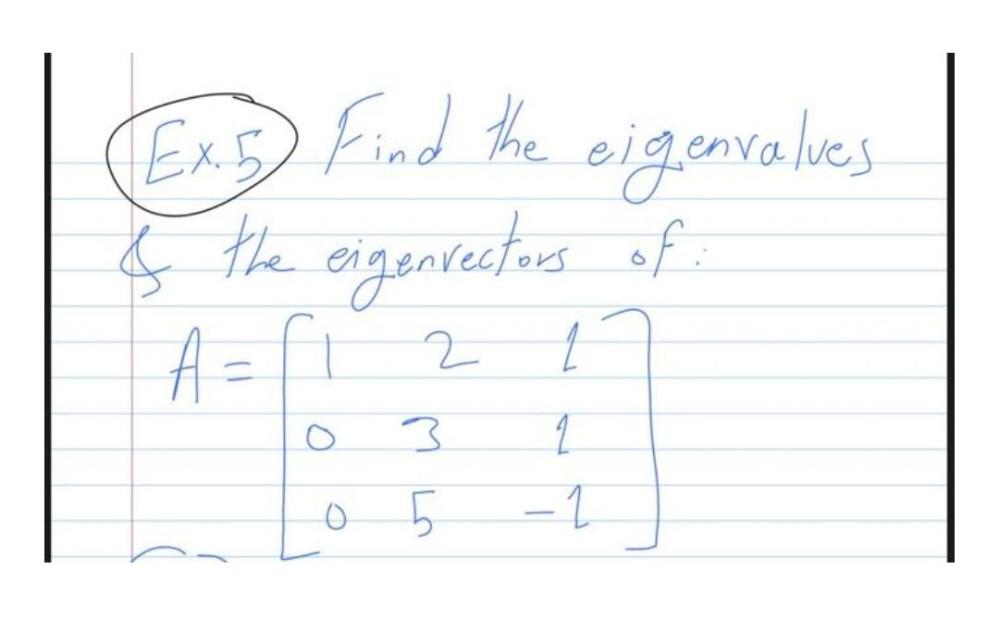 Ex.5 Find the eigenvalues
& the eigenvectors of:
A = [1 2 1
0 3 1
0 5 -1]